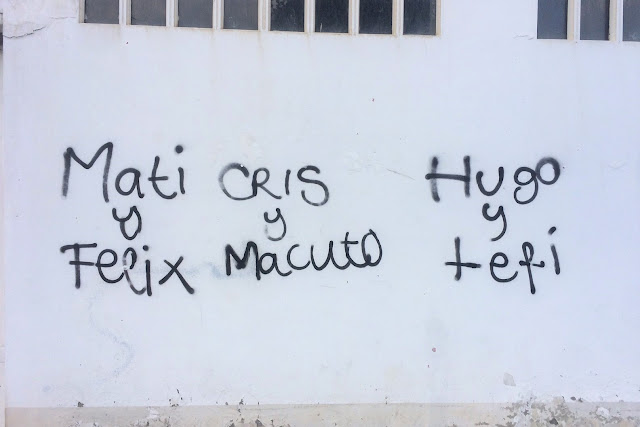 Mati
y
Felix
CRIS
y
Macuto
Hugo
y
tefi